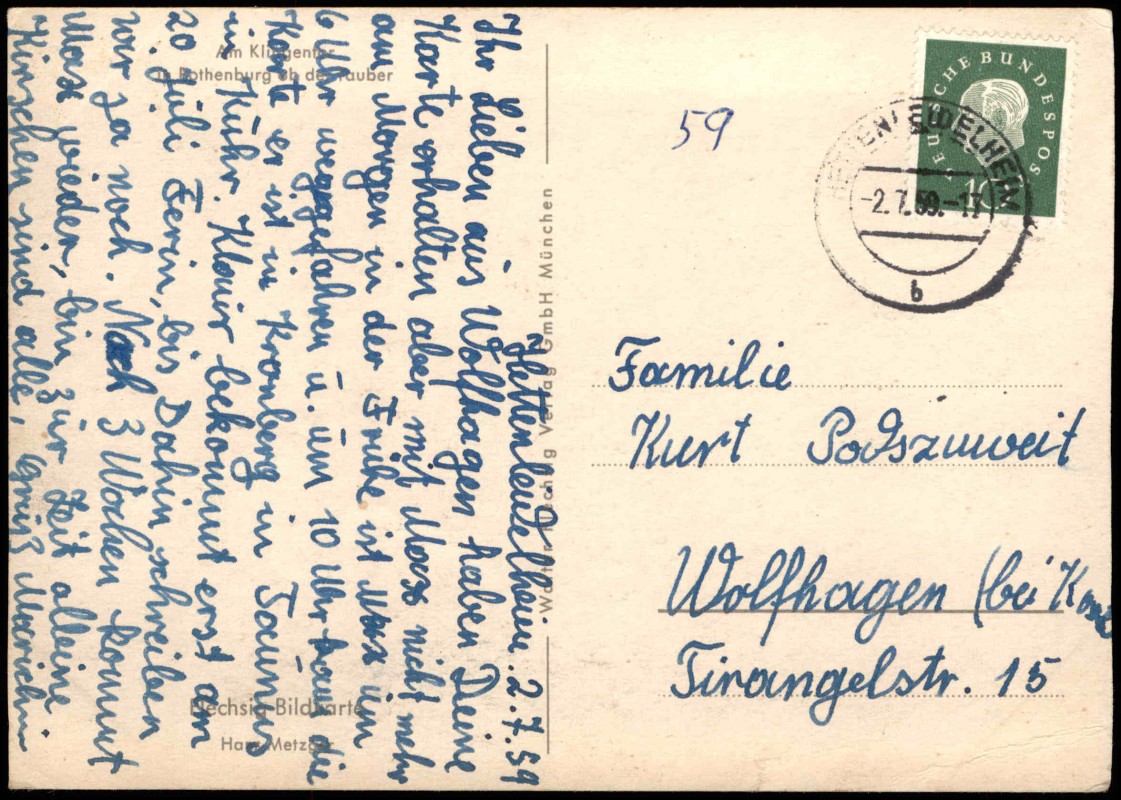 Am Klingentor
in Rothenburg ob der Tauber
Hettenleidelheim. 2.7.59
Ihr Lieben aus Wolfhagen haben Deine
Karte erhalten aber mit Max nicht mehr
am Morgen in der Frühe ist Max um
6 Uhr weggefahren u. um 10 Uhr kam die
Karte er ist in Kronberg in Taunus
in Kuhr. Klaus bekommt erst am
20 Juli Ferin, bis Dahin schreiben
wir ja noch. Nach 3 Wochen kommt
Max wieder, bin zur Zeit alleine.
Kirschen sind alle, gruß Mariechen
Hans Metzger
Walter Flechsig Verlag GmbH München
59
DEUTSCHE BUNDESPOST
10
HETTENLEIDELHEIM
-2.7.59.-17
b
Familie
Kurt Podszuweit
Wolfhagen (bei Kassel
Tirangelstr. 15